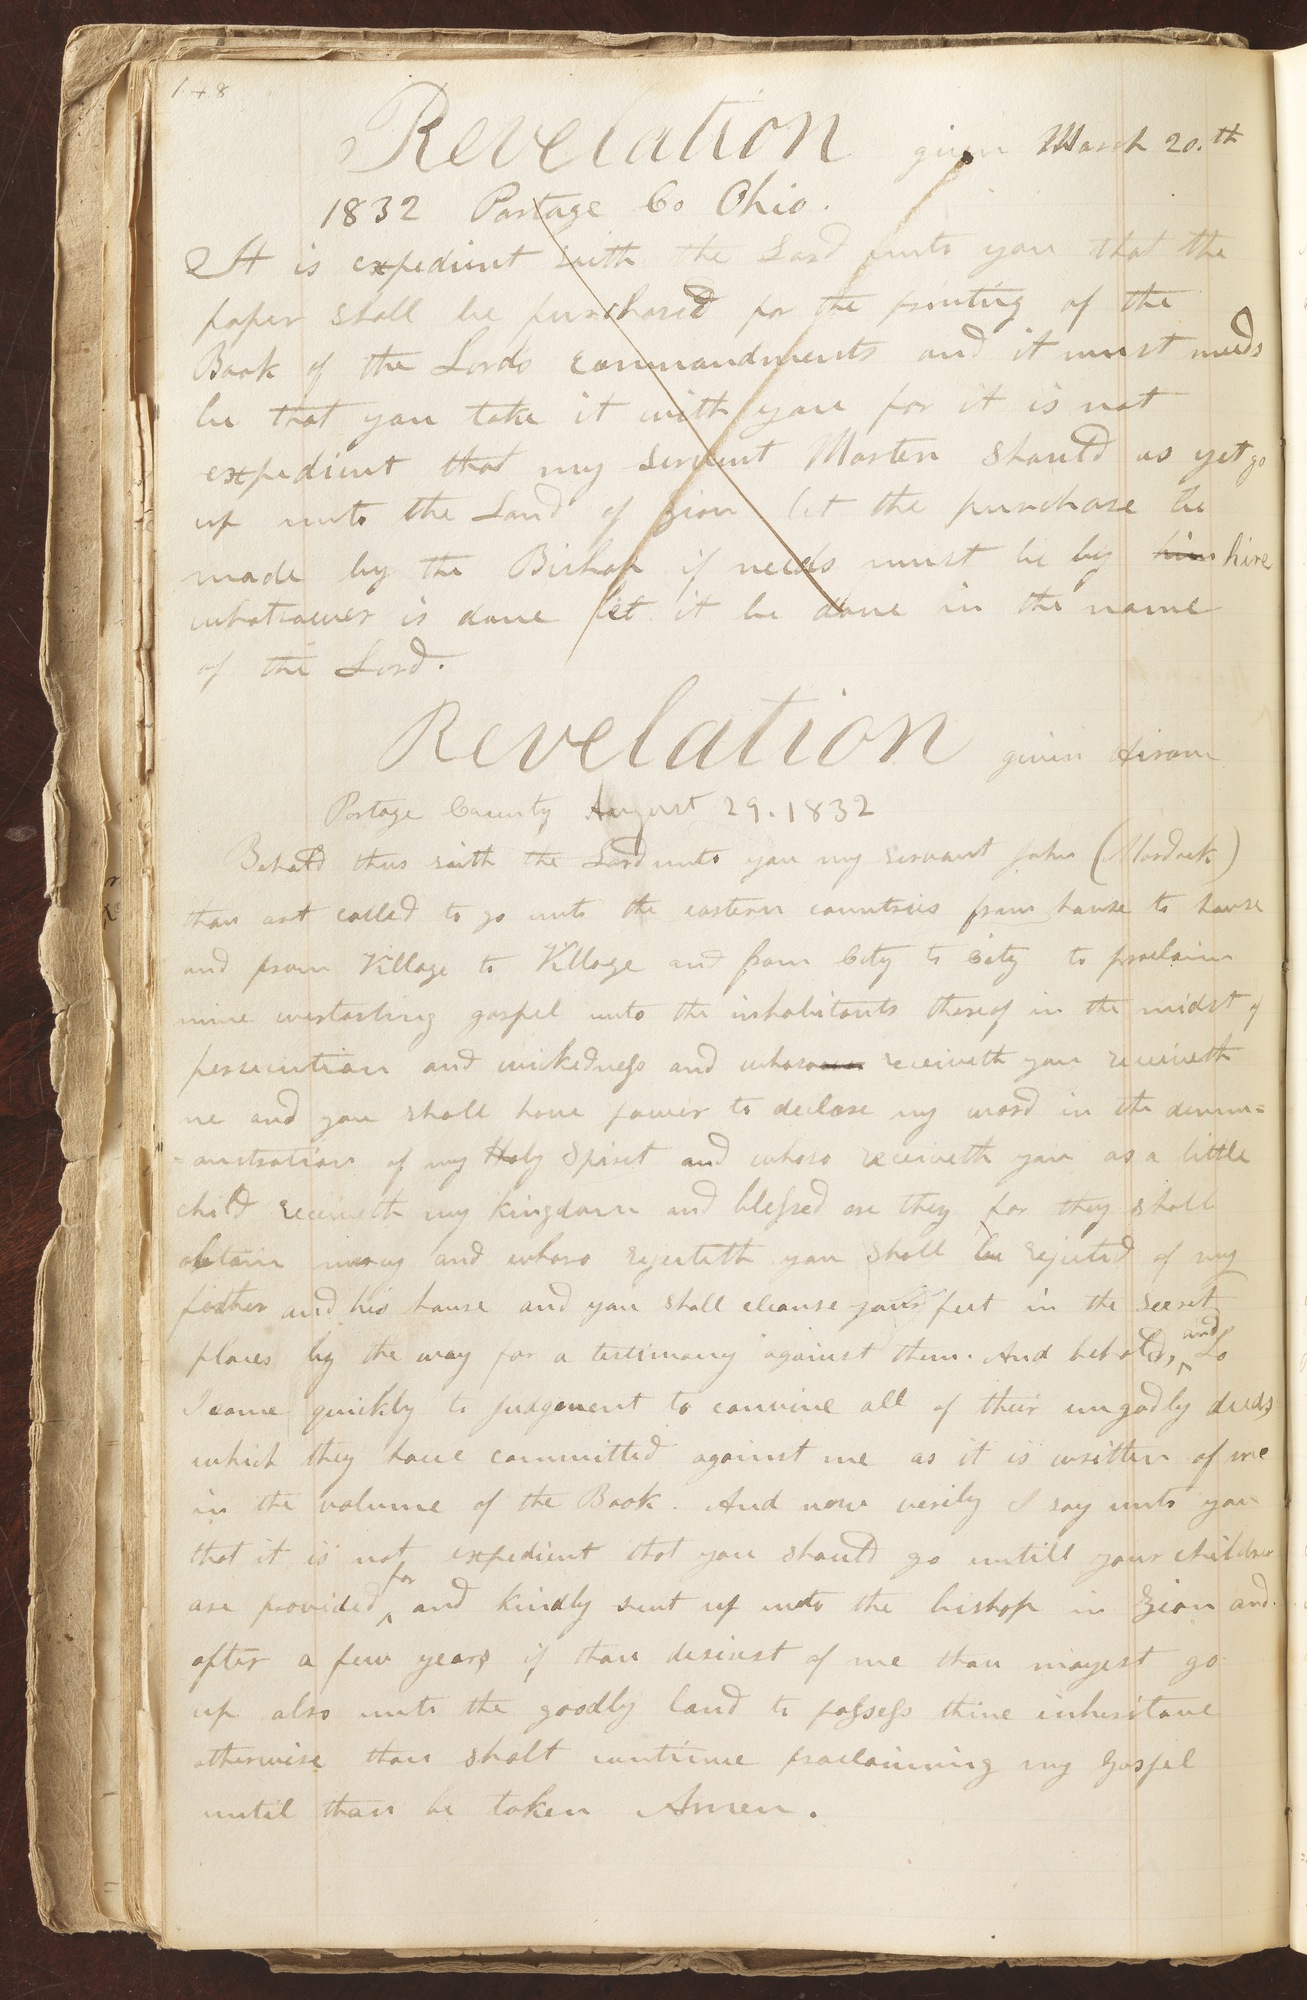 148
Revelation given March 20.th
1832 Portage Co Ohio.
It is expedient saith the Lord unto you that the
paper shall be purchased for the printing of the
Book of the Lords commandments and it must needs
be that you take it with you for it is not
expedient that my servent Marten should as yet go
up unto the Land of Zion let the purchase be
made by the Bishop if needs must be by him hire
whatsoever is done let it be done in the name
of the Lord.
Revelation given Hiram
Portage County August 29. 1832
Behold thus saith the Lord unto you my servant John (Mordock)
thou art called to go unto the eastern countries from house to house
and from Village to Village and from City to City to proclaim
mine everlasting gospel unto the inhabitants thereof in the midst of
persecution and wickedness and whoso receiveth you receiveth
me and you shall have power to declare my word in the demm=
=onstration of my Holy Spirit and whoso receiveth you as a little
child receiveth my kingdom and blessed are they for they shall
obtain mercy and whoso rejecteth you shall be rejected of my
father and his house and you shall cleanse your feet in the secret
places by the way for a testimony against them. And behold, and Lo
I come quickly to judgement to convince all of their ungodly deeds
which they have committed against me as it is written of me
in the volume of the Book. And now verily I say unto you
that it is not expedient that you should go untill your children
are provided for and kindly sent up unto the bishop in Zion and
after a few years if thou desirest of me thou mayest go
up also unto the goodly land to possess thine inheritance
otherwise thou shalt continue proclaiming my gospel
until thou be taken Amen.